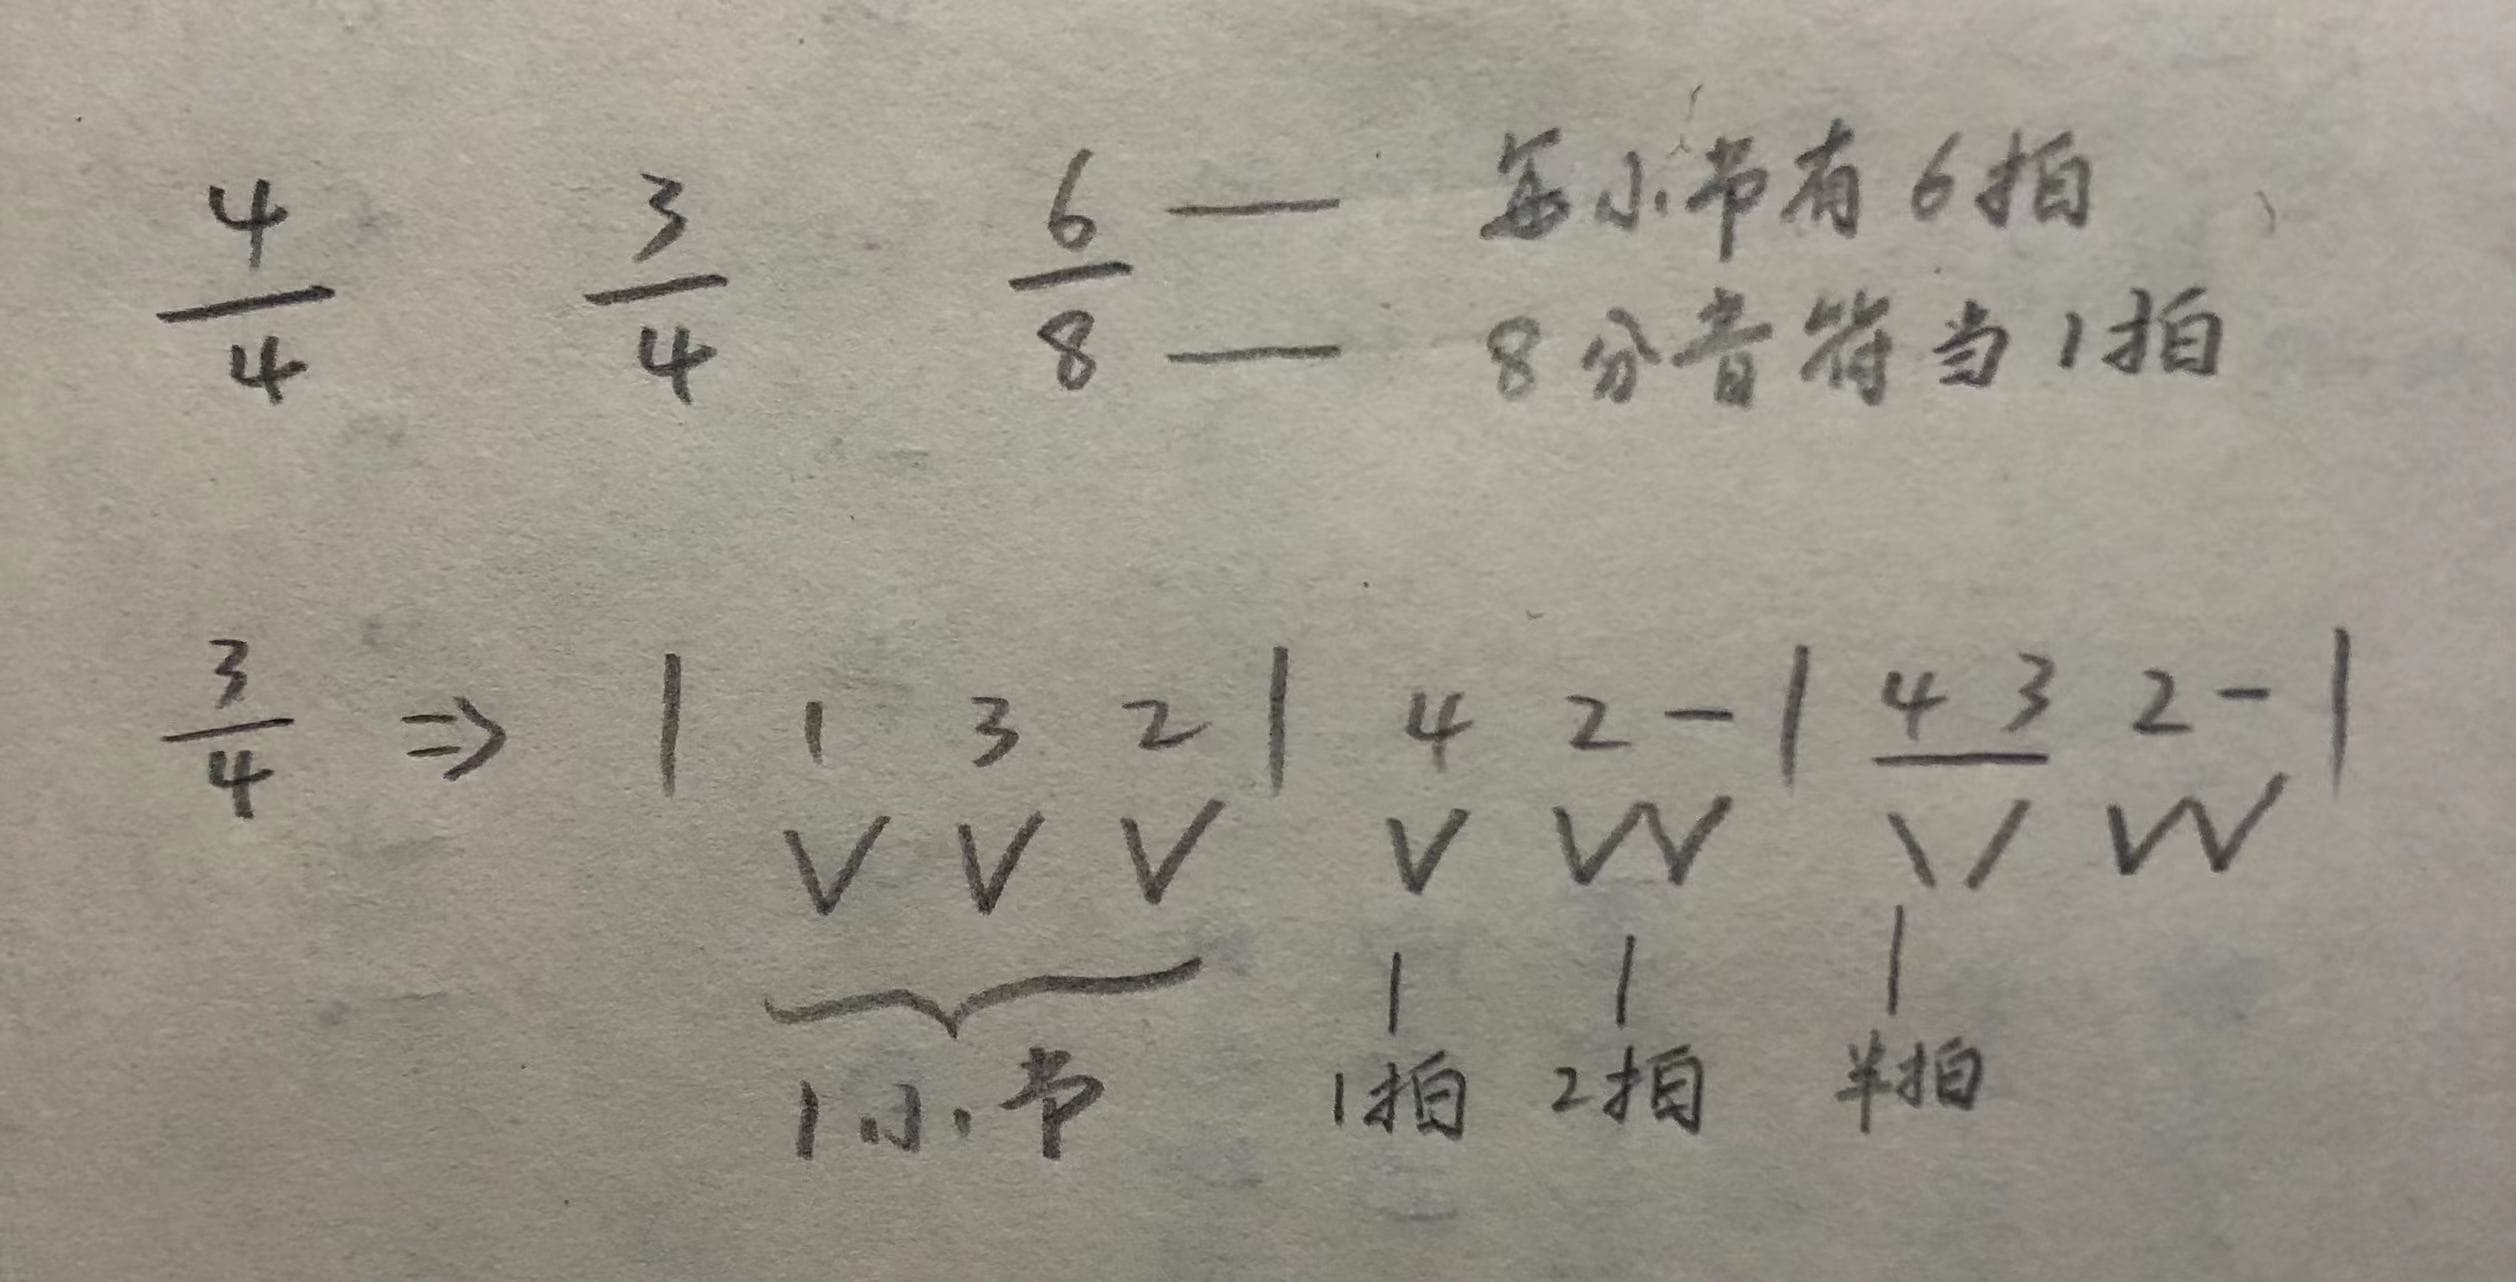 4/4 3/4 6/8 — 每小节有6拍
— 8分音符当1拍
3/4 ⇒ | 1 3 2 | 4 2 - | 4 3 2 - |
V V V V VV \ / VV
1小节 1拍 2拍 半拍